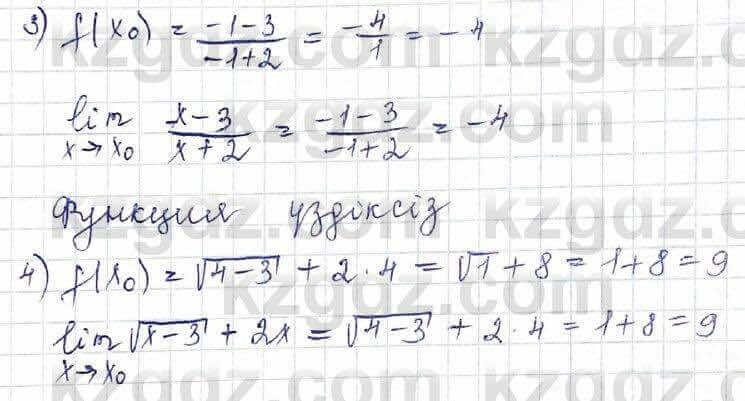 3) f(x₀) = (-1-3)/(-1+2) = -4/1 = -4
lim x→x₀ (x-3)/(x+2) = (-1-3)/(-1+2) = -4
Функция үздіксіз
4) f(x₀) = √(4-3) + 2·4 = √1 + 8 = 1+8 = 9
lim x→x₀ √(x-3) + 2x = √(4-3) + 2·4 = 1+8 = 9
kzgdz.com